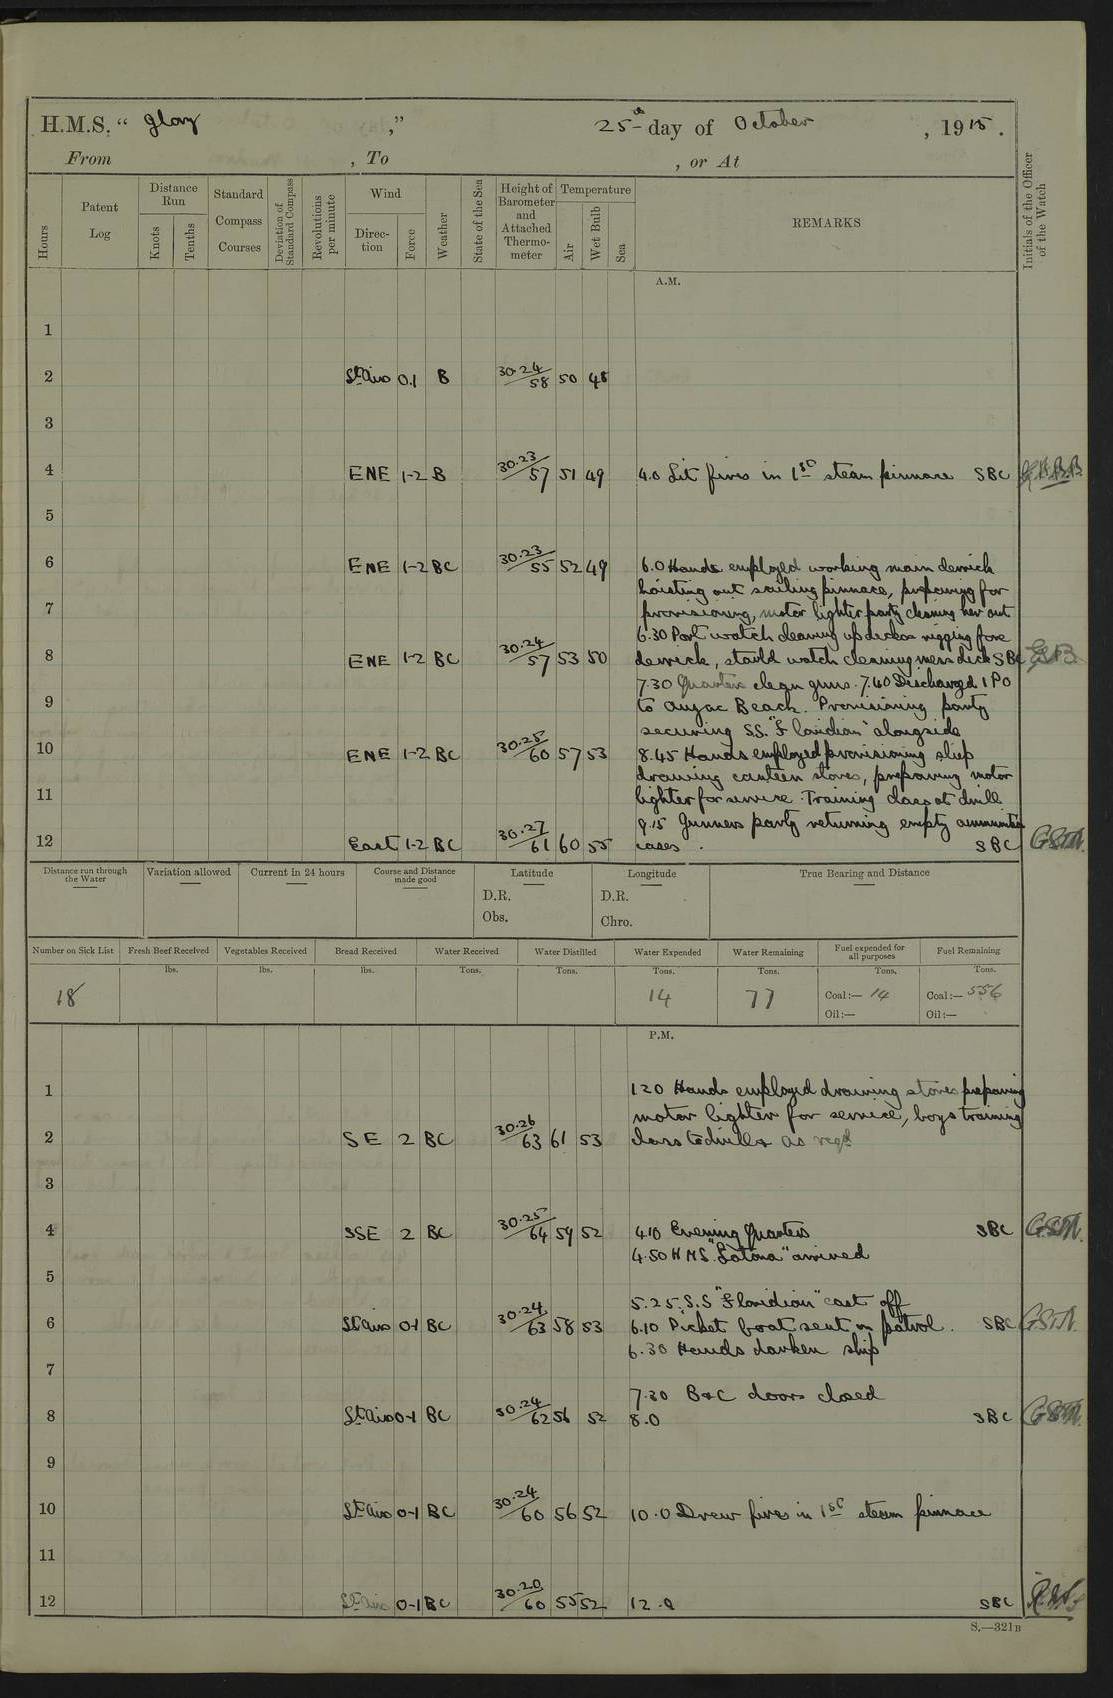 H.M.S. "Glory," 25th day of October, 1915.
From , To , or At
Hours
Patent Log
Distance Run
Knots
Tenths
Standard Compass Courses
Deviation of Standard Compass
Revolutions per minute
Wind
Direction
Force
Weather
State of the Sea
Height of Barometer and Attached Thermometer
Temperature
Air
Wet Bulb
Sea
REMARKS
Initials of the Officer of the Watch
A.M.
1
2 Lt Airs 0.1 B 30.24/58 50 48
3
4 ENE 1-2 B 30.23/57 51 49 4.0 Lit fires in 1st steam pinnace SBC
5
6 ENE 1-2 BC 30.23/55 52 49 6.0 Hands employed working main derrick
hoisting out sailing pinnace, preparing for
7 provisioning, motor lighter party cleaning her out
6.30 Port watch cleaning up decks rigging fore
8 ENE 1-2 BC 30.24/57 53 50 derrick, starbd watch cleaning mess deck SBC
7.30 Quarters clean guns. 7.40 Discharged 1 PO
9 to Anzac Beach. Provisioning party
securing SS. "Floridian" alongside
10 ENE 1-2 BC 30.25/60 57 53 8.45 Hands employed provisioning ship
drawing canteen stores, preparing motor
11 lighter for service. Training class at drill
9.15 Gunners party returning empty ammunition
12 East 1-2 BC 30.27/61 60 55 cases. SBC
Distance run through the Water
Variation allowed
Current in 24 hours
Course and Distance made good
Latitude
D.R.
Obs.
Longitude
D.R.
Chro.
True Bearing and Distance
Number on Sick List
Fresh Beef Received
Vegetables Received
Bread Received
Water Received
Water Distilled
Water Expended
Water Remaining
Fuel expended for all purposes
Fuel Remaining
lbs. lbs. lbs. Tons. Tons. Tons. Tons. Tons. Tons.
18 14 77 Coal:— 14 Coal:— 556
Oil:— Oil:—
P.M.
1 1 20 Hands employed drawing stores preparing
motor lighter for service, boys training
2 SE 2 BC 30.26/63 61 53 class to drills as reqd
3
4 SSE 2 BC 30.25/64 59 52 4 10 Evening Quarters SBC
4.50 HMS "Latona" arrived
5
5.25 S.S "Floridian" cast off
6 Lt Airs 0-1 BC 30.24/63 58 53 6.10 Picket boat sent on patrol. SBC
6.30 Hands darken ship
7
7.30 B & C doors closed
8 Lt Airs 0-1 BC 30.24/62 56 52 8.0 SBC
9
10 Lt Airs 0-1 BC 30.24/60 56 52 10.0 Drew fires in 1st steam pinnace
11
12 Lt Airs 0-1 BC 30.20/60 55 52 12.0 SBC
S.—321B